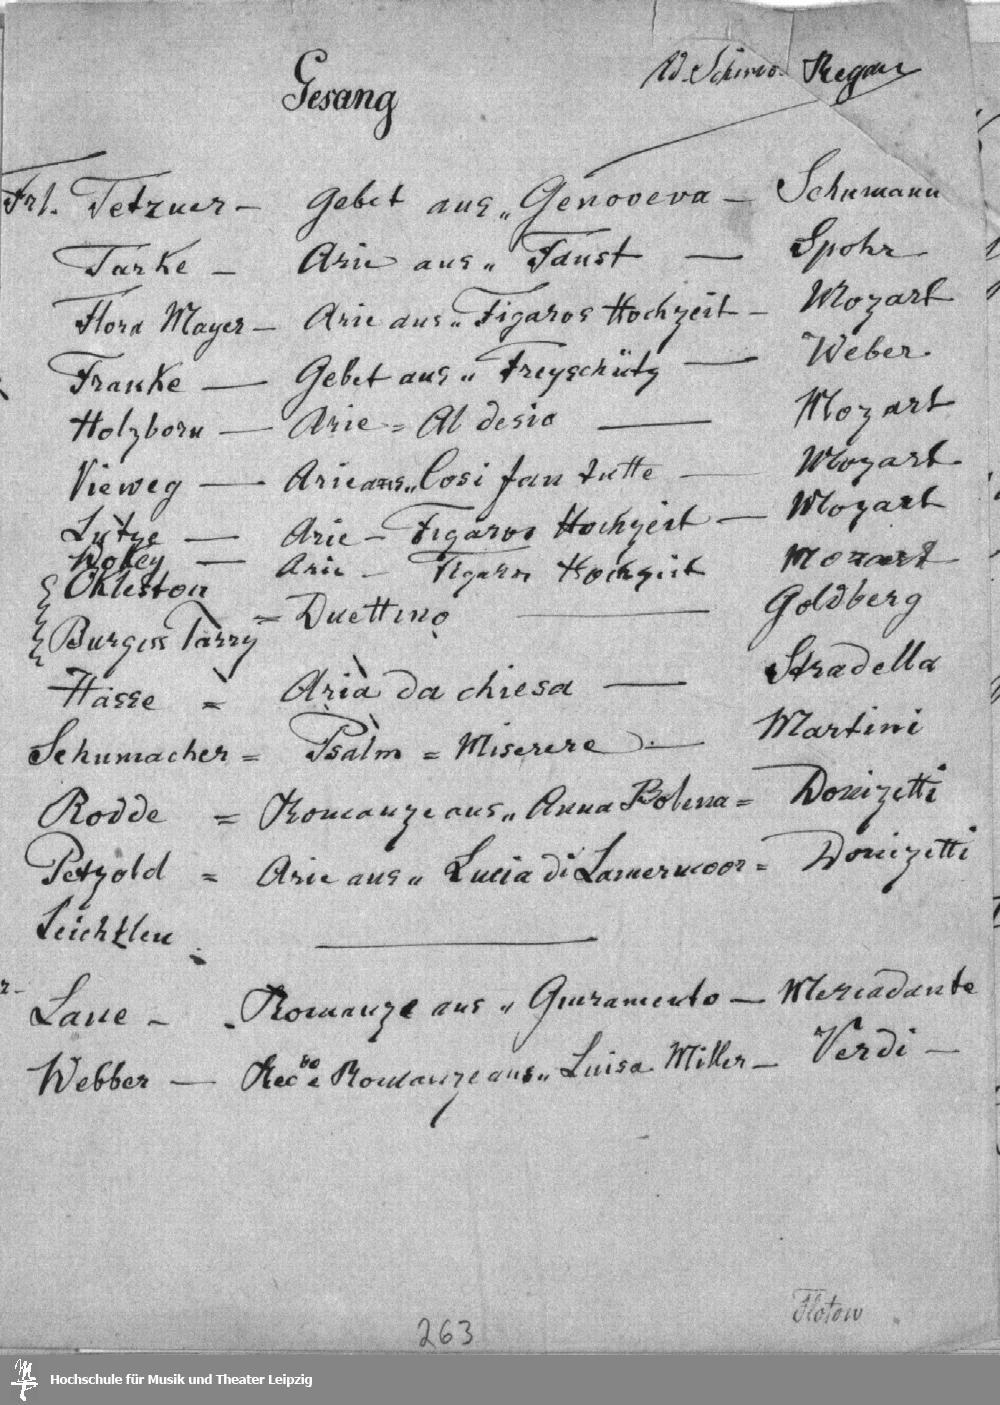 Gesang
Regan
Frl. Tetzner - Gebet aus „Genoveva - Schumann
Tanke - Arie aus „Faust - Spohr
Flora Mayer - Arie aus „Figaros Hochzeit - Mozart
Franke - Gebet aus „Freyschütz - Weber
Holzborn - Arie = Al desio - Mozart
Vieweg - Arie aus „Cosi fan tutte - Mozart
Lutze - Arie - Figaros Hochzeit - Mozart
- Arie - Figaros Hochzeit Mozart
Okleston
= Duettino - Goldberg
Burgiss Tarry
Hasse = Aria da chiesa - Stradella
Schumacher = Psalm = Miserere - Martini
Rodde = Romanze aus „Anna Bolena = Donizetti
Petzold = Arie aus „Lucia di Lamermoor = Donizetti
Leichtlen
Lane - Romanze aus „Giuramento - Mercadante
Webber - Rec e Romanze aus „Luisa Miller - Verdi -
Flotow
263
Hochschule für Musik und Theater Leipzig